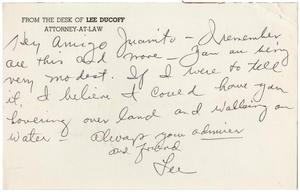 FROM THE DESK OF LEE DUCOFF
ATTORNEY-AT-LAW
Hey Amigo Juanito – I remember
all this and more – You are being
very modest. If I were to tell
it, I believe I could have you
hovering over land and walking on
water – Always your admirer
and friend
Lee